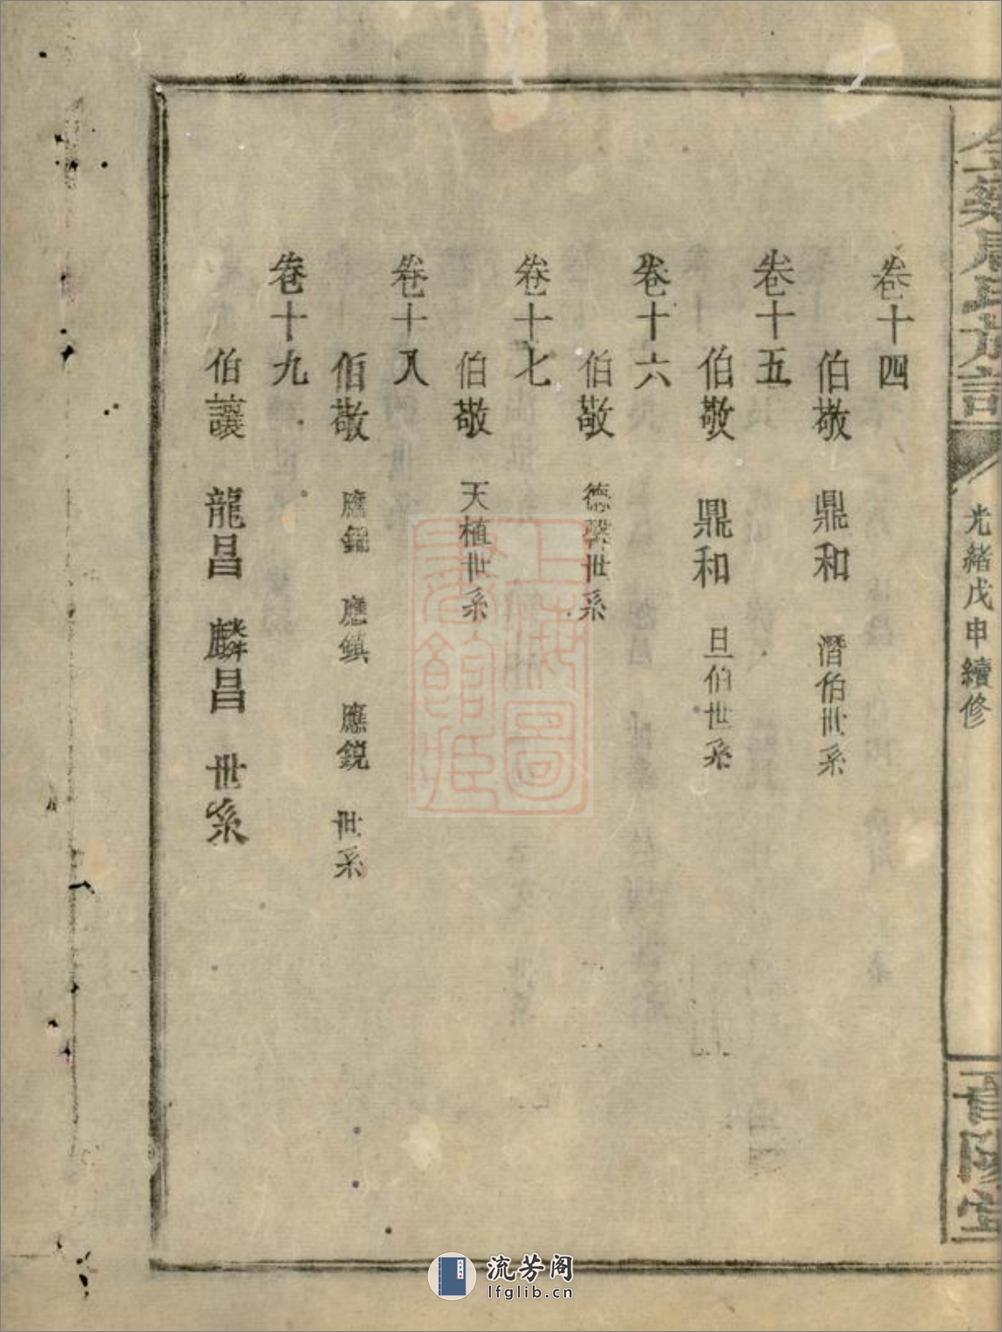 光緒戊申續修
卷十四
伯敬 鼎和 潛伯世系
卷十五
伯敬 鼎和 旦伯世系
卷十六
伯敬 德馨世系
卷十七
伯敬 天植世系
卷十八
伯敬 應 應鎮 應銳 世系
卷十九
伯讓 龍昌 麟昌 世系
上海圖書館藏
流芳阁
lfglib.cn